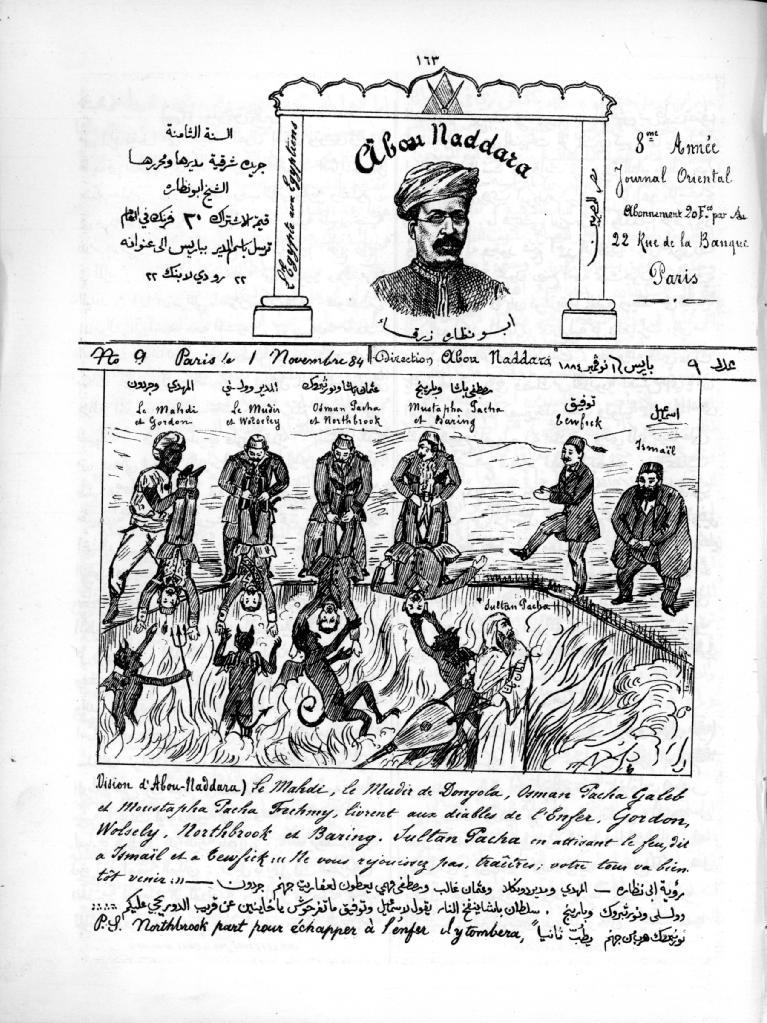 ١٦٣
السنة الثامنة
جريدة شرقية مديرها ومحررها
الشيخ ابو نظاره
قيمة الاشتراك ٢٠ فرنك في العام
ترسل باسم المدير بباريس الى عنوانه
٢٢ رو دي لا بنك ٢٢
L'Egypte aux Egyptiens
Abou Naddara
مصر للمصريين
ابو نظاره زرقاء
8me Année
Journal Oriental
Abonnement 20 Fcs par An
22 Rue de la Banque
Paris
No 9 Paris le 1 Novembre 84 Direction "Abou Naddara" باريس ١ نوڤمبر ١٨٨٤ عدد ٩
المهدي وجردون
Le Mahdi
et Gordon
المدير وولسلي
Le Mudir
et Wolseley
عثمان باشا ونورثبروك
Osman Pacha
et Northbrook
مصطفى باشا وبارينج
Mustapha Pacha
et Baring
توفيق
Tewfick
اسماعيل
Ismaïl
Sultan Pacha
Vision d'Abou-Naddara) Le Mahdi, le Mudir de Dongola, Osman Pacha Galeb
et Moustapha Pacha Fechmy, livrent aux diables de l'Enfer, Gordon,
Wolsely, Northbrook et Baring. Sultan Pacha en attisant le feu, dit
a Ismaïl et a Tewfick: Ne vous rejouissez pas, traîtres; votre tour va bien-
tôt venir
رؤية ابي نظاره — المهدي ومدير دونكلا وعثمان غالب ومصطفى فهمي يعطون لعفاريت جهنم جردون
وولسلي ونورثبروك وبارينج. سلطان باشا ينفخ النار يقول لاسماعيل وتوفيق ما تفرحوش يا خاينين عن قريب الدور يجي عليكم
P.S. Northbrook part pour échapper à l'enfer il y tombera, نورثبروك هرب من جهنم يطب ثانيا